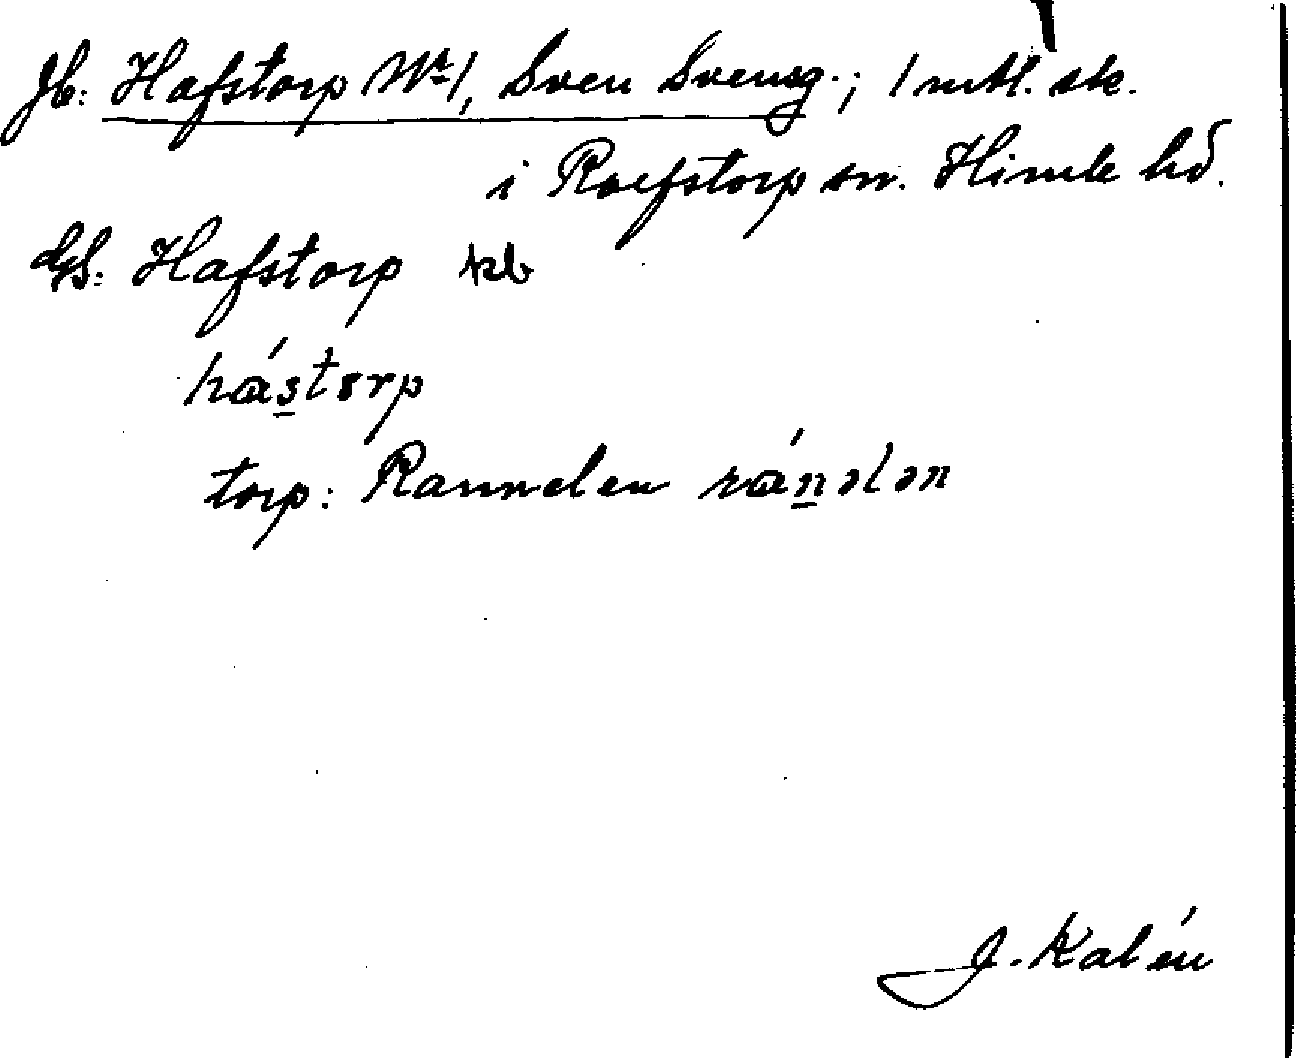 Jb: Hafstorp Nr 1, Sven Svensg.; 1 mtl. sk.
i Roefstorp sn. Himle hd.
GS: Hafstorp kb
hástorp
torp: Rannelen ránələn
J. Kalén